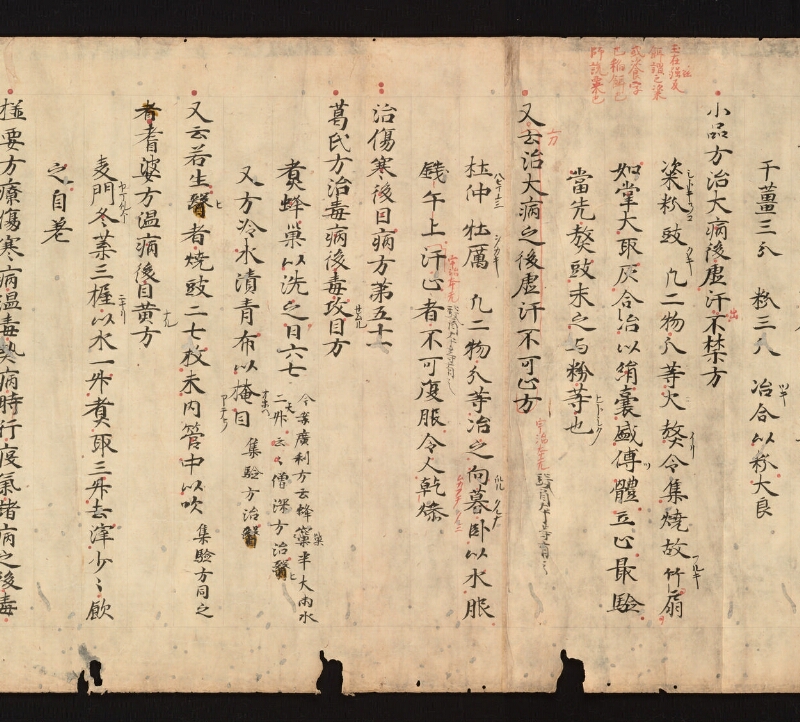 干薑三分 粉三分 冶合以粉大良
小品方治大病後虛汗不禁方
粢粉豉 凡二物分等火熬令集燒故竹扇
如掌大取灰合治以絹囊盛傅體立止最驗
當先熬豉末之与粉等也
又云治大病之後虛汗不可止方
杜仲 牡厲 凡二物分等治之向暮卧以水服
錢午上汗止者不可復服令人乾燥
治傷寒後目病方第五十一
葛氏方治毒病後毒攻目方
煮蜂巢以洗之日六七
今案廣利方云蜂窠半大兩水
二升云々僧深方治
又方冷水漬青布以掩目
集驗方治
又云若生翳者燒豉二七枚末内管中以吹
集驗方同之
耆婆方温病後目黄方
麦門冬葉三握以水一升煮取三升去滓少々飲
之自差
極要方療傷寒病温毒熱病時行疫氣諸病之後毒